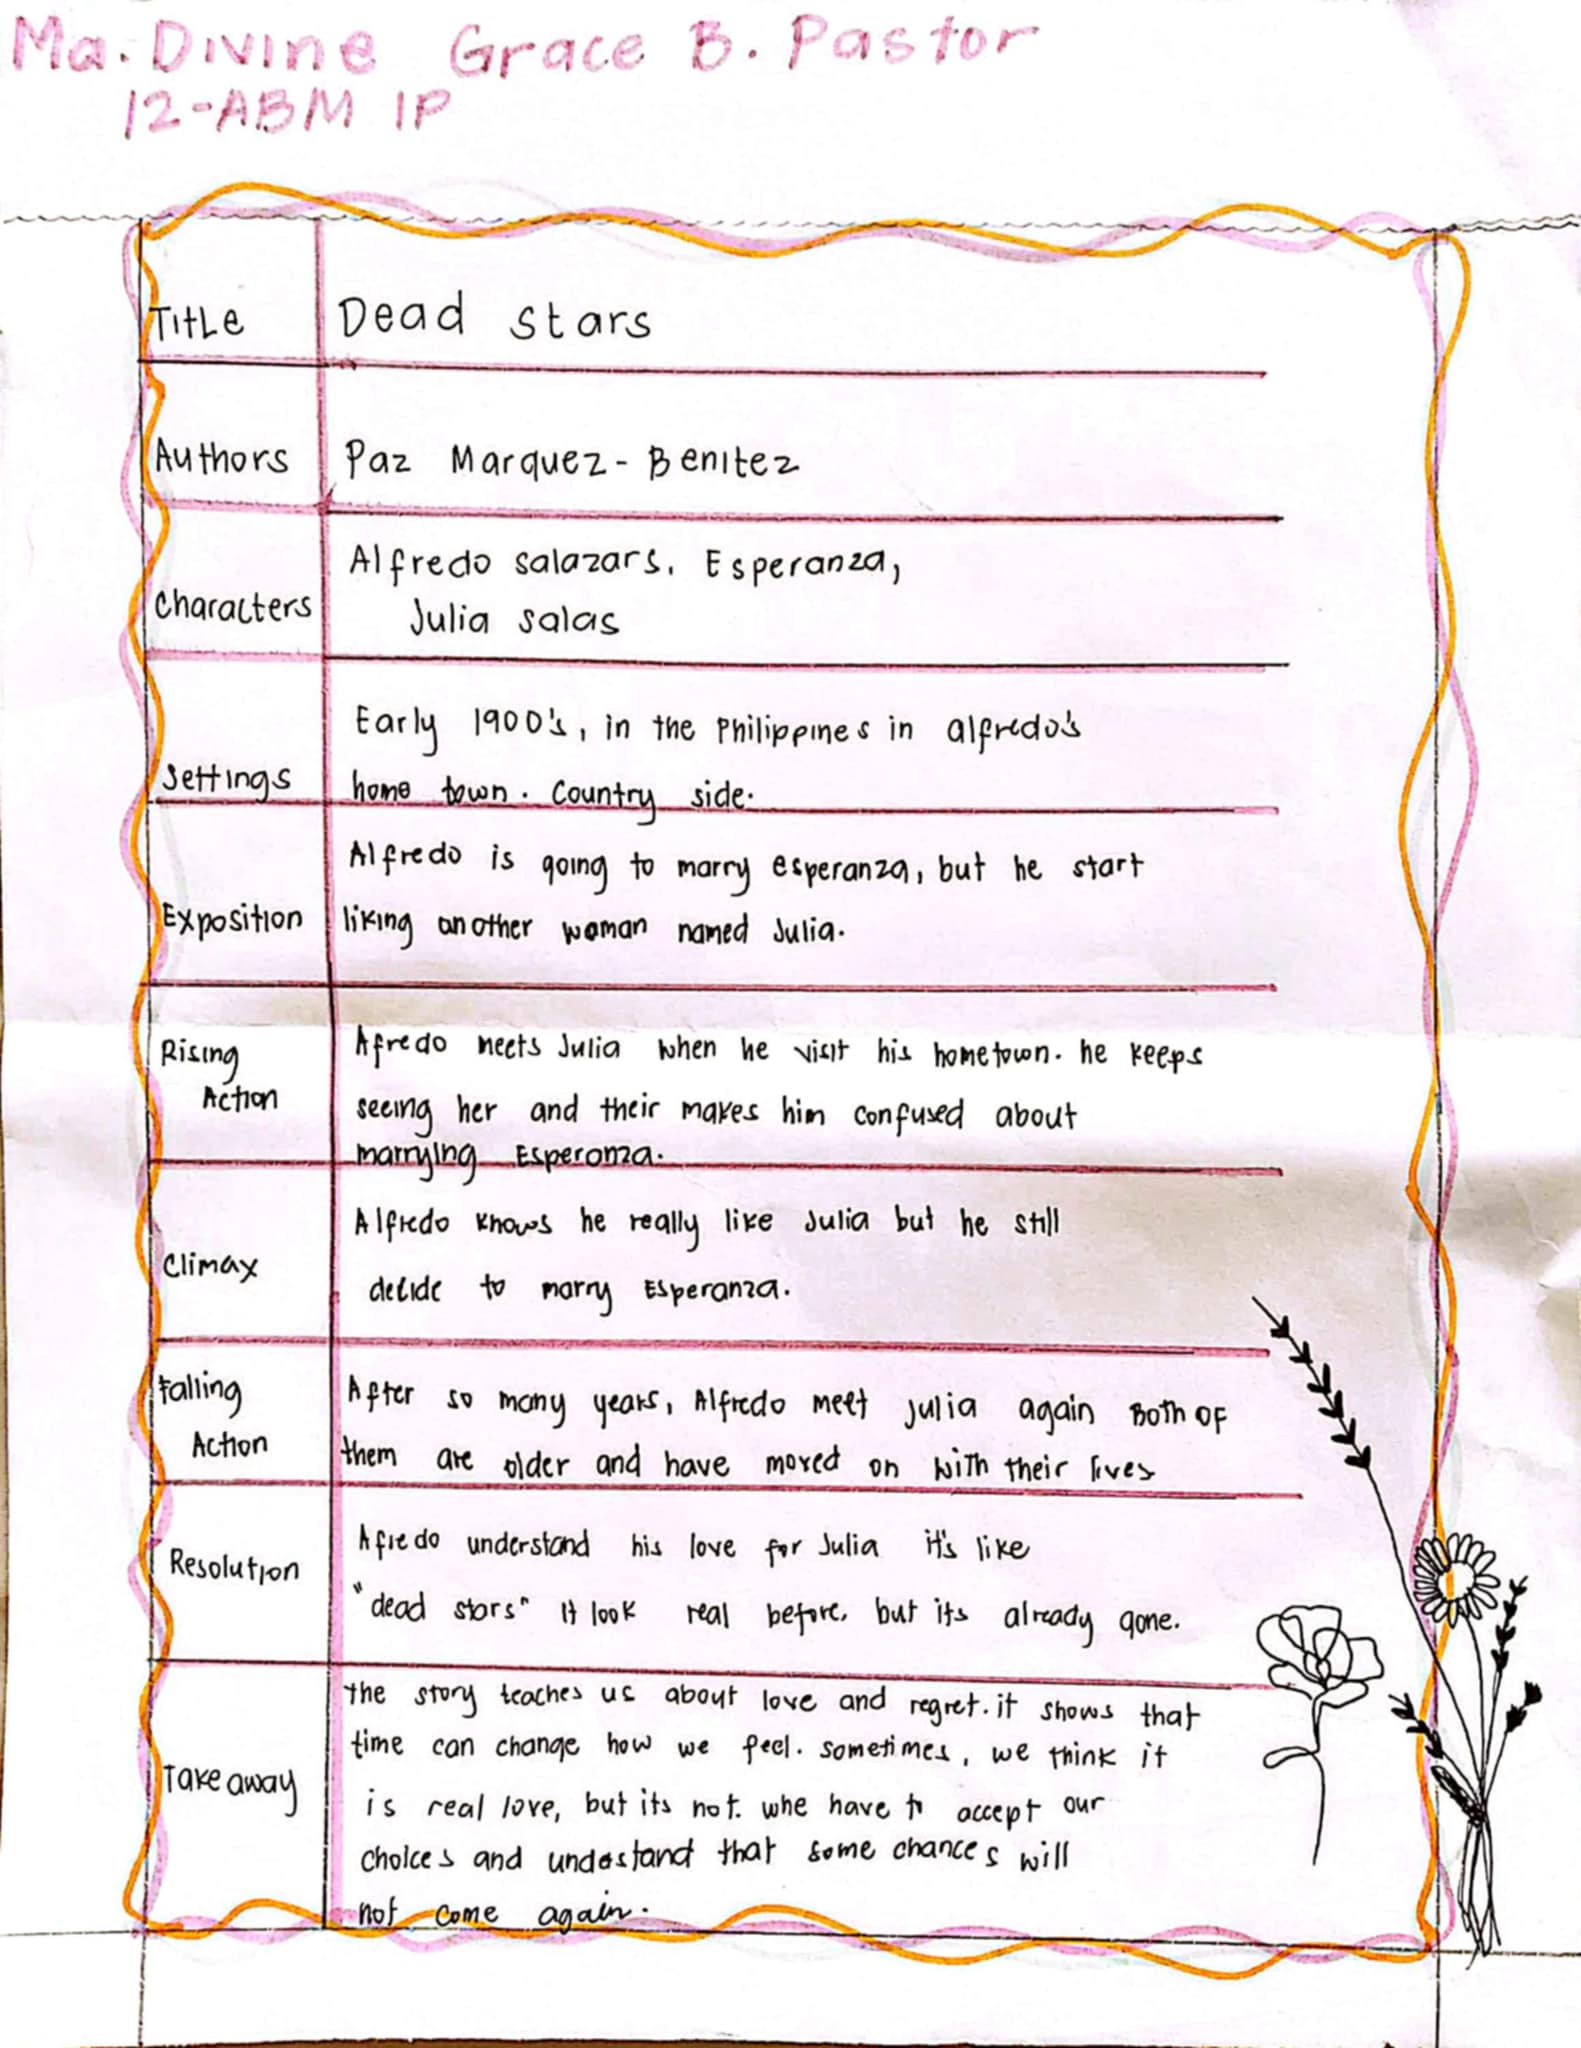 Ma. Divine Grace B. Pastor
12-ABM 1P
Title
Dead stars
Authors
Paz Marquez-Benitez
Characters
Alfredo salazars, Esperanza,
Julia salas
Settings
Early 1900's, in the Philippines in alfredo's
home town. Country side.
Exposition
Alfredo is going to marry esperanza, but he start
liking another woman named Julia.
Rising
Action
Afredo meets Julia when he visit his hometown. he keeps
seeing her and their makes him confused about
marrying Esperanza.
Climax
Alfredo knows he really like Julia but he still
decide to marry Esperanza.
Falling
Action
After so many years, Alfredo meet Julia again Both of
them are older and have moved on with their lives
Resolution
Afredo understand his love for Julia it's like
"dead stars" It look real before, but its already gone.
Take away
the story teaches us about love and regret. it shows that
time can change how we feel. sometimes, we think it
is real love, but its not. whe have to accept our
choices and undestand that some chances will
not come again.